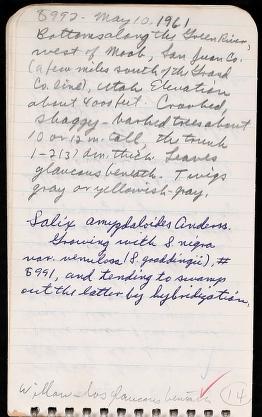 8992 - May 10, 1961
Bottoms along the Green River,
west of Moab, San Juan Co.
(a few miles south of the Grand
Co. line), Utah Elevation
about 4000 feet. Crooked,
shaggy-barked trees about
10 or 12 m. tall, the trunk
1-2(3) dm. thick. Leaves
glaucous beneath. Twigs
gray or yellowish-gray.
Salix amygdaloides Anderss.
Growing with S. nigra
var. venulosa (S. gooddingii), #
8991, and tending to swamp
out the latter by hybridization.
Willow - lvs glaucous beneath
14